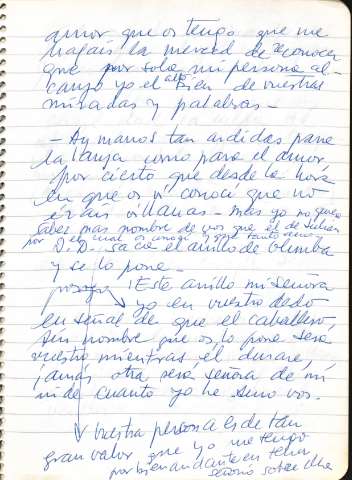 amor que os tengo que me
hagais la merced de reconocer
que por sola mi persona al-
canzo yo el alto bien de vuestras
miradas y palabras –
– Ay manos tan ardidas para
la lanza como para el amor,
por cierto que desde la hora
en que os vi conoci que no
erais villanas – mas yo no quiero
saber mas nombre de vos que el de
por el cual os conoci y que tanto
D. D. saca el anillo de
y se lo pone –
prosigue ¡Este anillo mi señora
yo en vuestro dedo
en señal de que el caballero,
sin nombre que os lo pone sera
vuestro mientras el durare,
jamás otra sera señora de mi
ni de cuanto yo he sino vos.
vuestra persona es de tan
gran valor que yo me tengo
por bien andante en tener
señorio sobre ella